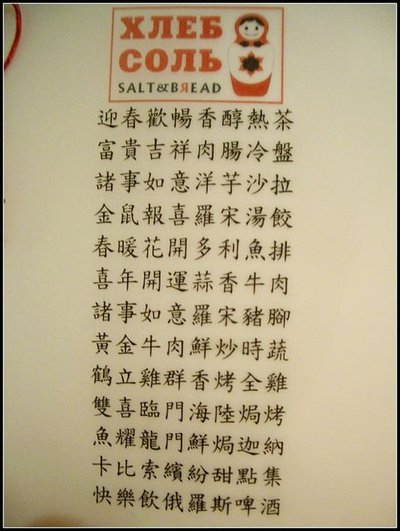 ХЛЕБ
СОЛЬ
SALT&BЯEAD
迎春歡暢香醇熱茶
富貴吉祥肉腸冷盤
諸事如意洋芋沙拉
金鼠報喜羅宋湯餃
春暖花開多利魚排
喜年開運蒜香牛肉
諸事如意羅宋豬腳
黃金牛肉鮮炒時蔬
鶴立雞群香烤全雞
雙喜臨門海陸焗烤
魚耀龍門鮮焗迦納
卡比索繽紛甜點集
快樂飲俄羅斯啤酒